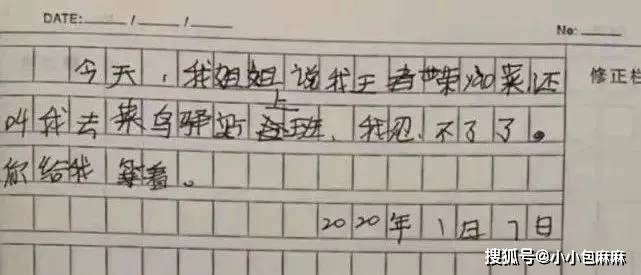 DATE: / / No:
今天,我姐姐说我王者荣yao菜还 修正栏
叫我去菜鸟驿站上班,我忍不了了。
你给我等着。
2020年1月7日
搜狐号@小小包麻麻